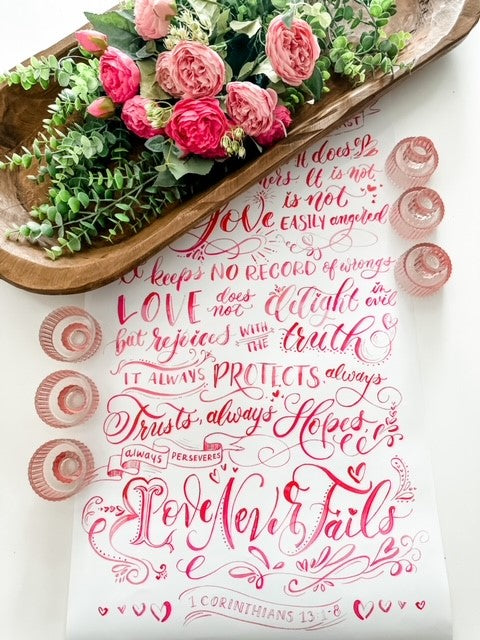 It does
It is not
is not
Love EASILY angered
It keeps NO RECORD of wrongs
LOVE does not delight in evil
but rejoices WITH THE truth
IT ALWAYS PROTECTS, always
Trusts, always Hopes,
always PERSEVERES
Love Never Fails
1 CORINTHIANS 13:4-8